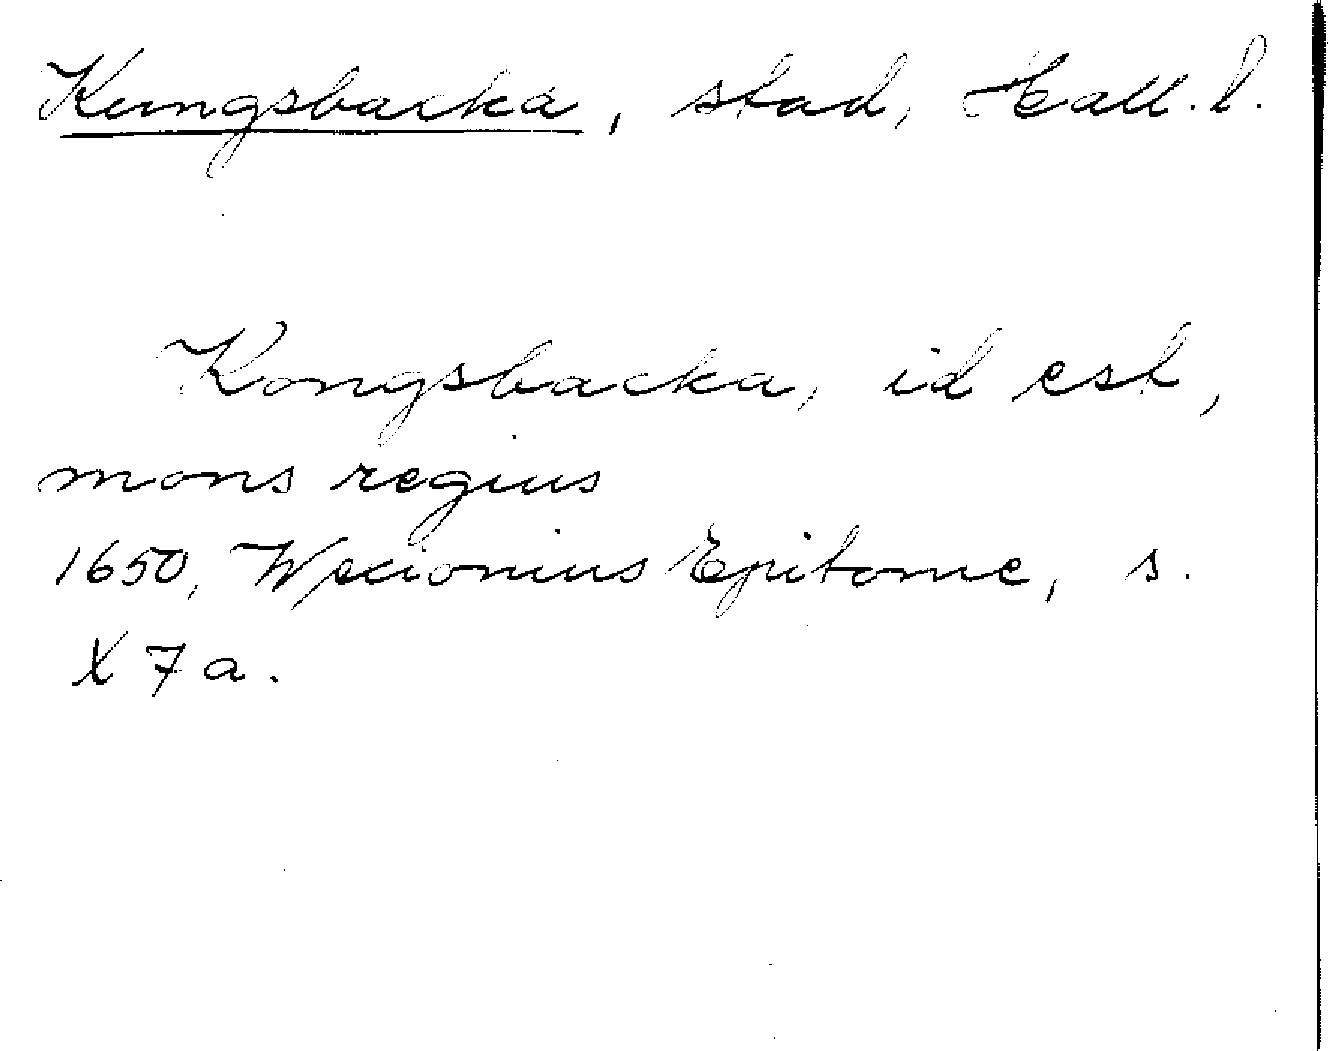 Kungsbacka, stad, Hall. l.
Kongsbacka, id est,
mons regius
1650, Wexionius Epitome, s.
X 7 a.